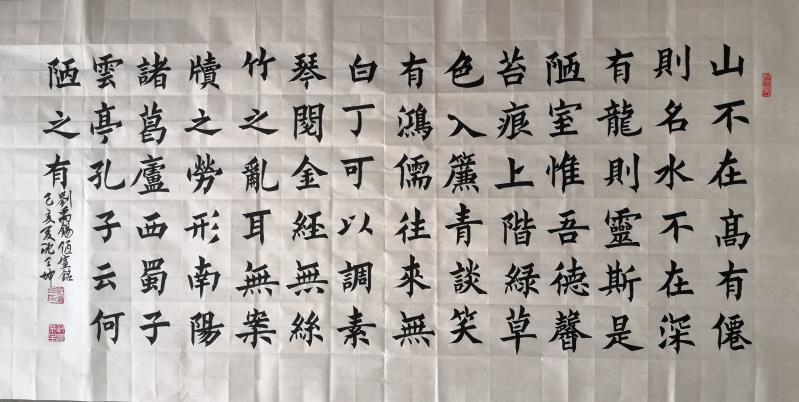 山不在高有僊
則名水不在深
有龍則靈斯是
陋室惟吾德馨
苔痕上階綠草
色入簾青談笑
有鴻儒往來無
白丁可以調素
琴閱金經無絲
竹之亂耳無案
牘之勞形南陽
諸葛廬西蜀子
雲亭孔子云何
陋之有
劉禹錫陋室銘
己亥夏沈坤